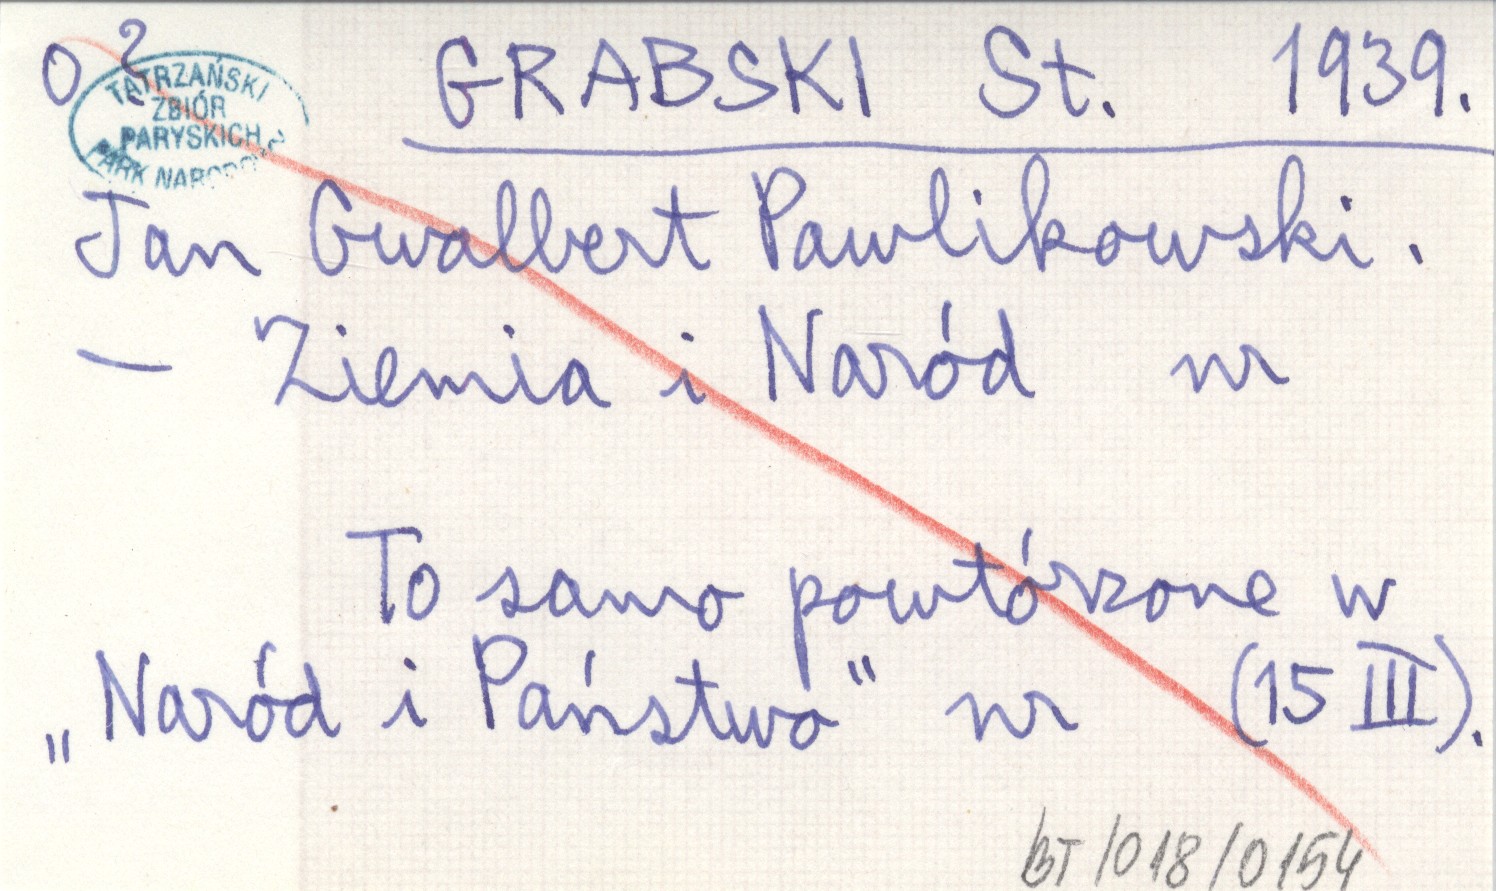 O ?
TATRZAŃSKI
ZBIÓR
PARYSKICH
PARK
GRABSKI St. 1939.
Jan Gwalbert Pawlikowski.
— Ziemia i Naród nr
To samo powtórzone w
„Naród i Państwo" nr (15 III).
BT/018/0154